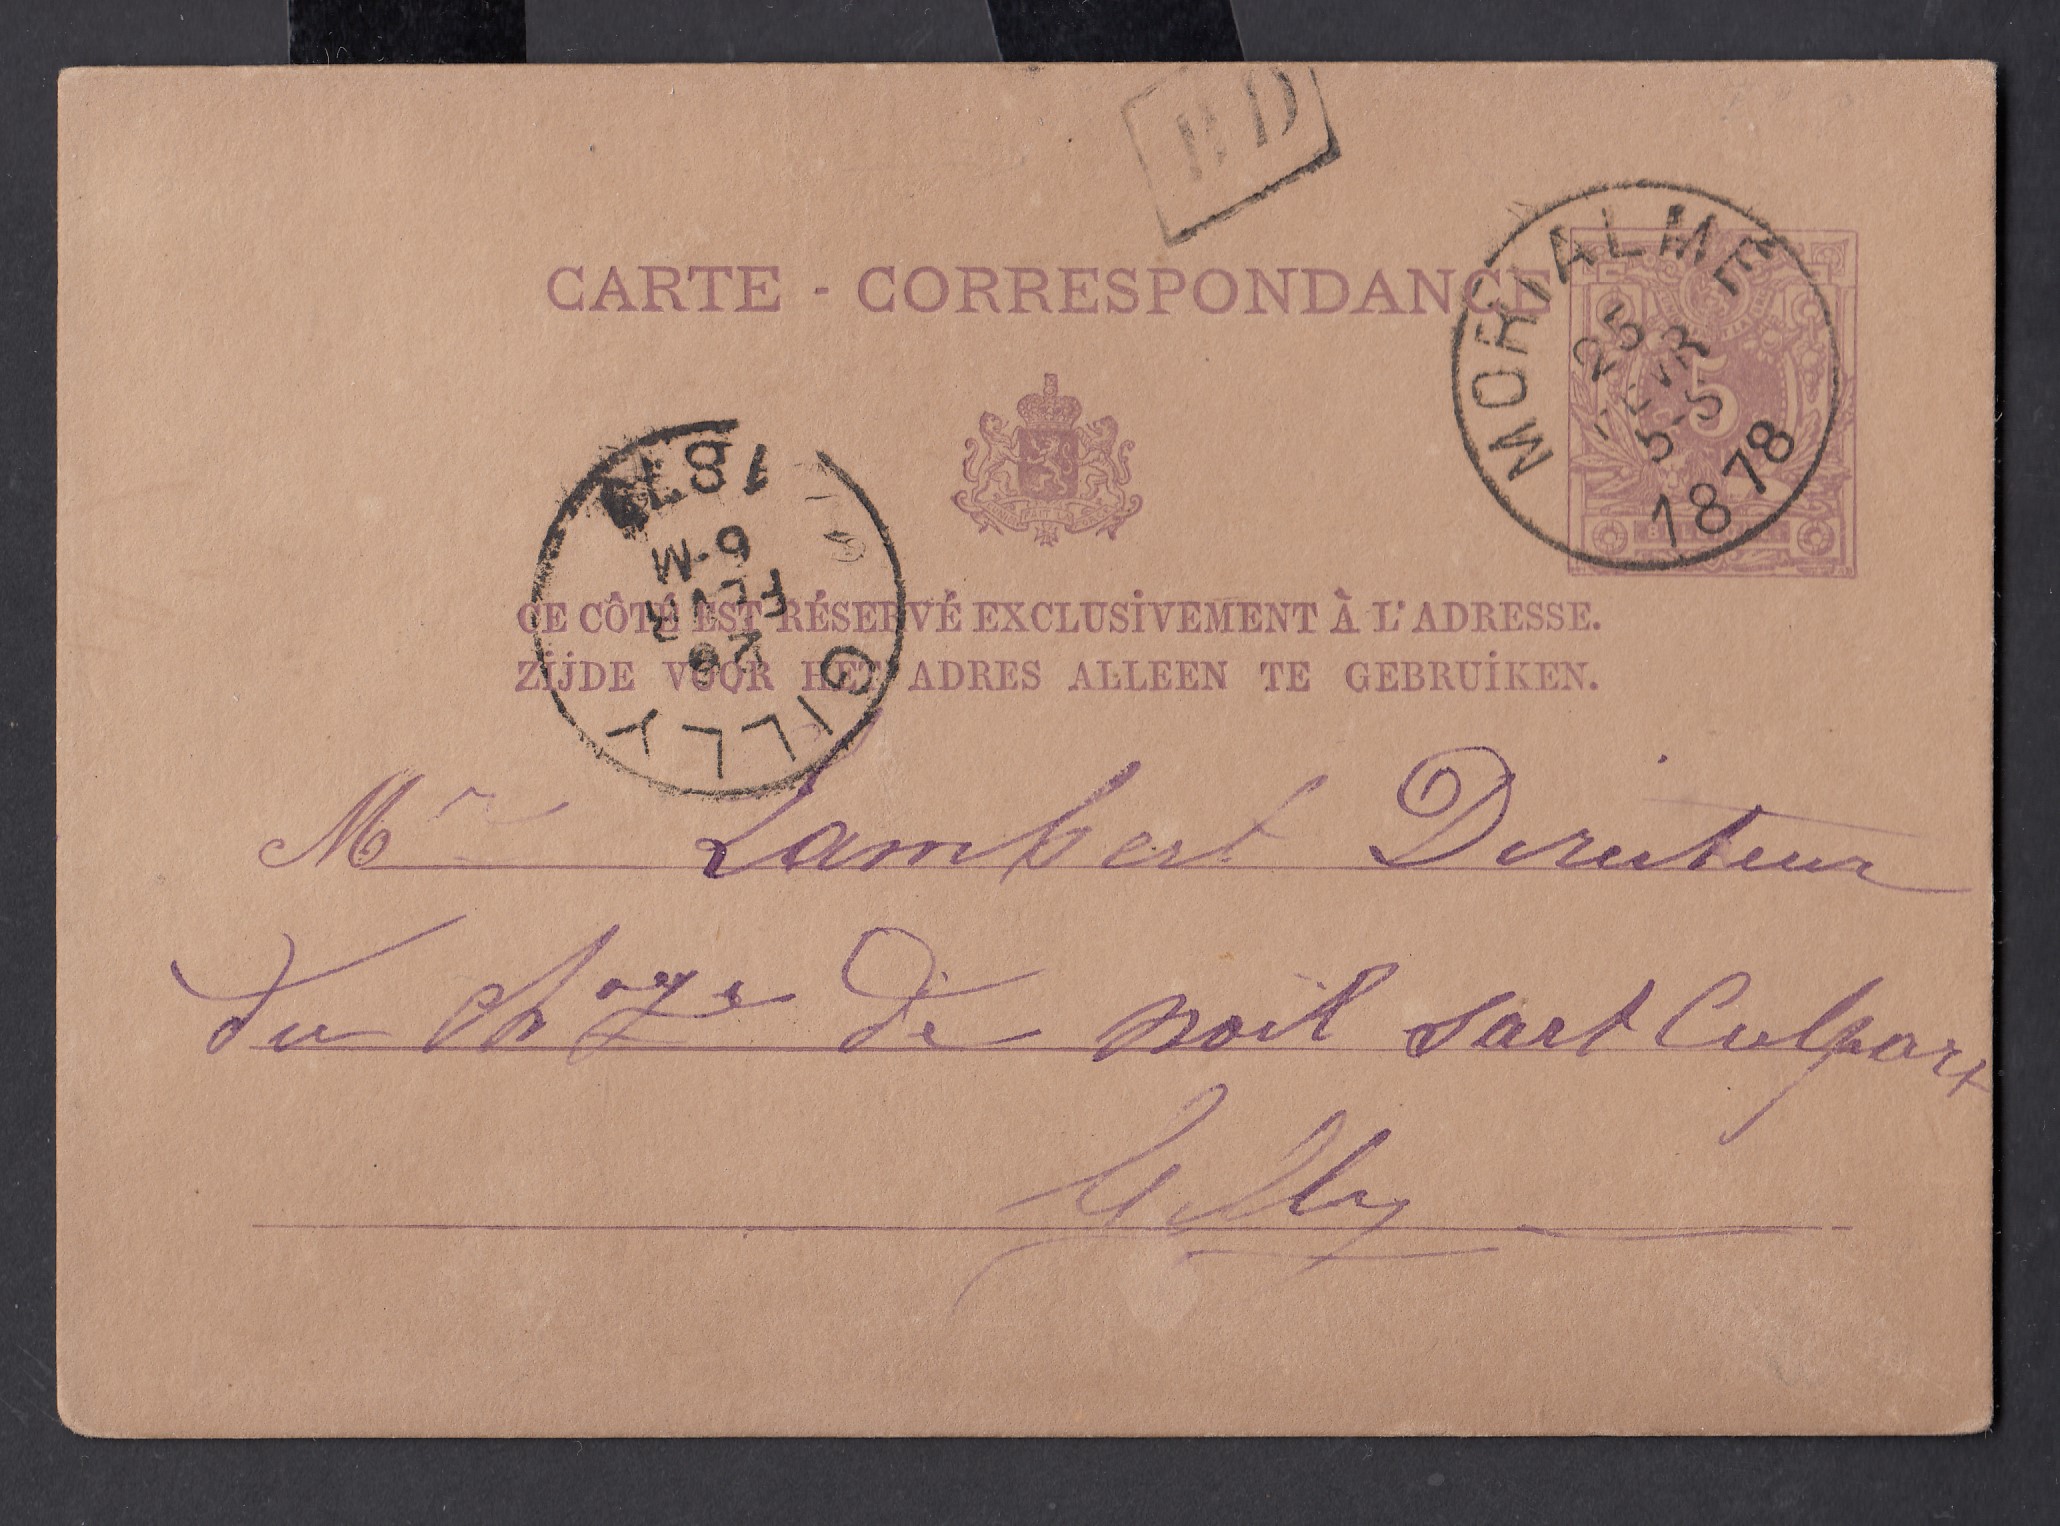 CARTE - CORRESPONDANCE
MORIALMÉ
25
FEVR
5-S
1878
5
1878
6-M
FEVR
26
GILLY
CE CÔTÉ EST RÉSERVÉ EXCLUSIVEMENT À L'ADRESSE.
ZIJDE VOOR HET ADRES ALLEEN TE GEBRUIKEN.
Mr Lambert Directeur
du chage de noil Sart Culpart
Gilly